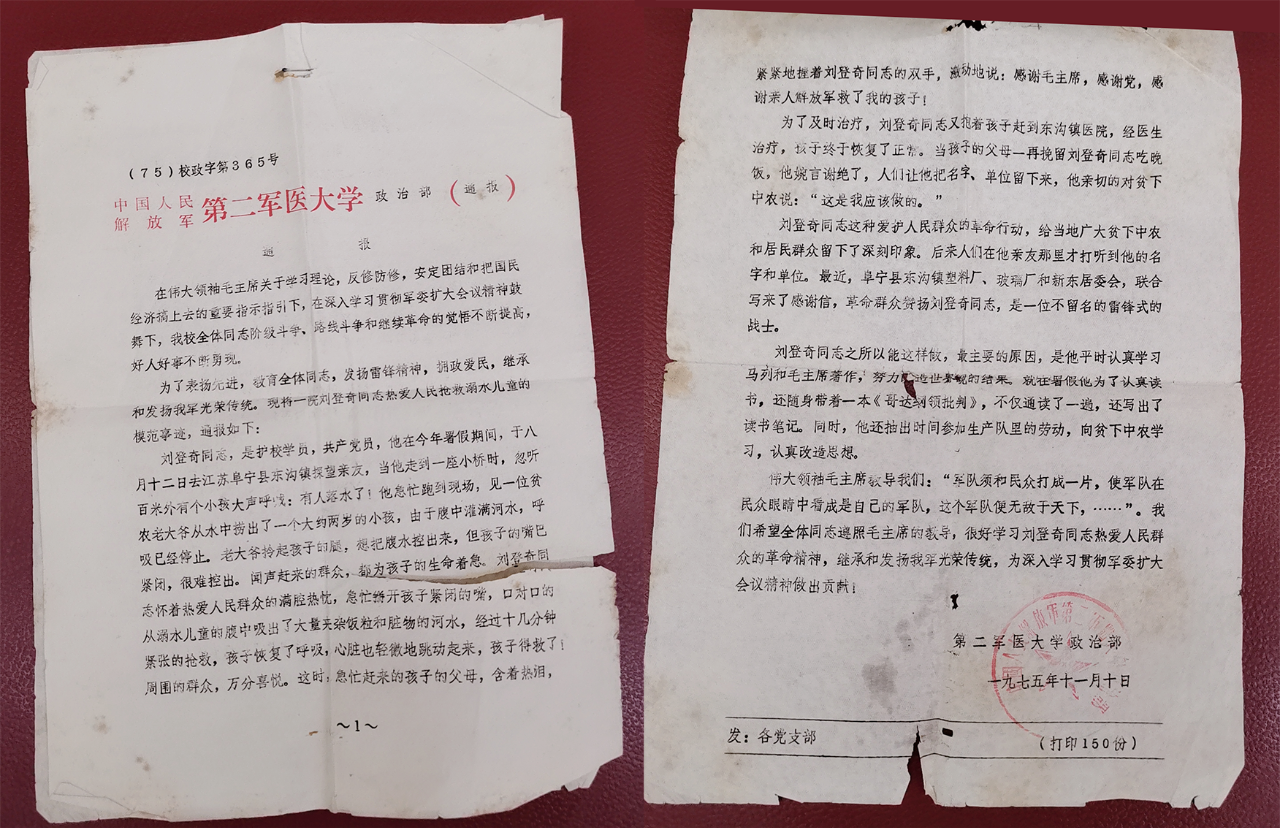 (75)校政字第365号
中国人民
解放军
第二军医大学 政治部 (通报)
通 报
在伟大领袖毛主席关于学习理论,反修防修,安定团结和把国民
经济搞上去的重要指示指引下,在深入学习贯彻军委扩大会议精神鼓
舞下,我校全体同志阶级斗争、路线斗争和继续革命的觉悟不断提高,
好人好事不断勇现。
为了表扬先进,教育全体同志,发扬雷锋精神,拥政爱民,继承
和发扬我军光荣传统。现将一院刘登奇同志热爱人民抢救溺水儿童的
模范事迹,通报如下:
刘登奇同志,是护校学员,共产党员,他在今年署假期间,于八
月十二日去江苏阜宁县东沟镇探望亲友,当他走到一座小桥时,忽听
百米外有个小孩大声呼喊:有人落水了!他急忙跑到现场,见一位贫
农老大爷从水中捞出了一个大约两岁的小孩,由于腹中灌满河水,呼
吸已经停止。老大爷拎起孩子的腿,想把腹水控出来,但孩子的嘴巴
紧闭,很难控出。闻声赶来的群众,都为孩子的生命着急。刘登奇同
志怀着热爱人民群众的满腔热忱,急忙掰开孩子紧闭的嘴,口对口的
从溺水儿童的腹中吸出了大量夹杂饭粒和脏物的河水,经过十几分钟
紧张的抢救,孩子恢复了呼吸,心脏也轻微地跳动起来,孩子得救了!
周围的群众,万分喜悦。这时,急忙赶来的孩子的父母,含着热泪,
~1~
紧紧地握着刘登奇同志的双手,激动地说:感谢毛主席,感谢党,感
谢亲人解放军救了我的孩子!
为了及时治疗,刘登奇同志又抱着孩子赶到东沟镇医院,经医生
治疗,孩子终于恢复了正常。当孩子的父母一再挽留刘登奇同志吃晚
饭,他婉言谢绝了,人们让他把名字、单位留下来,他亲切的对贫下
中农说:“这是我应该做的。”
刘登奇同志这种爱护人民群众的革命行动,给当地广大贫下中农
和居民群众留下了深刻印象。后来人们在他亲友那里才打听到他的名
字和单位。最近,阜宁县东沟镇塑料厂、玻璃厂和新东居委会,联合
写来了感谢信,革命群众赞扬刘登奇同志,是一位不留名的雷锋式的
战士。
刘登奇同志之所以能这样做,最主要的原因,是他平时认真学习
马列和毛主席著作,努力造世界观的结果。就在署假他为了认真读
书,还随身带着一本《哥达纲领批判》,不仅通读了一遍,还写出了
读书笔记。同时,他还抽出时间参加生产队里的劳动,向贫下中农学
习,认真改造思想。
伟大领袖毛主席教导我们:“军队须和民众打成一片,使军队在
民众眼睛中看成是自己的军队,这个军队便无敌于天下,……”。我
们希望全体同志遵照毛主席的教导,很好学习刘登奇同志热爱人民群
众的革命精神,继承和发扬我军光荣传统,为深入学习贯彻军委扩大
会议精神做出贡献!
第二军医大学政治部
一九七五年十一月十日
发:各党支部 (打印150份)